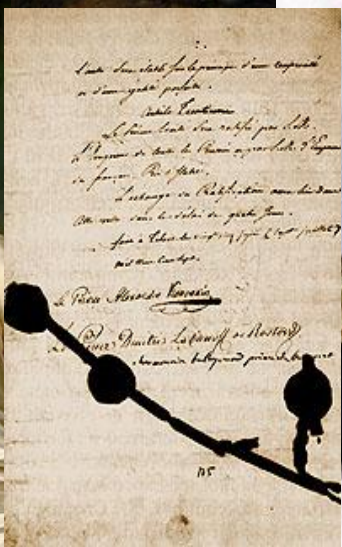 sera établi sur le principe d'une réciprocité
et d'une égalité parfaite.
Article
Le présent traité sera ratifié par S. M.
l'Empereur de toutes les Russies et par S. M. l'Empereur
des français, Roi d'Italie.
L'échange des Ratifications aura lieu dans
cette ville dans le délai de quatre jours.
fait à Tilsit le vingt cinq juin sept juillet
mil huit cent sept.
Le Prince Alexandre Kourakin
Le Prince Dmitri Labanoff de Rostoff